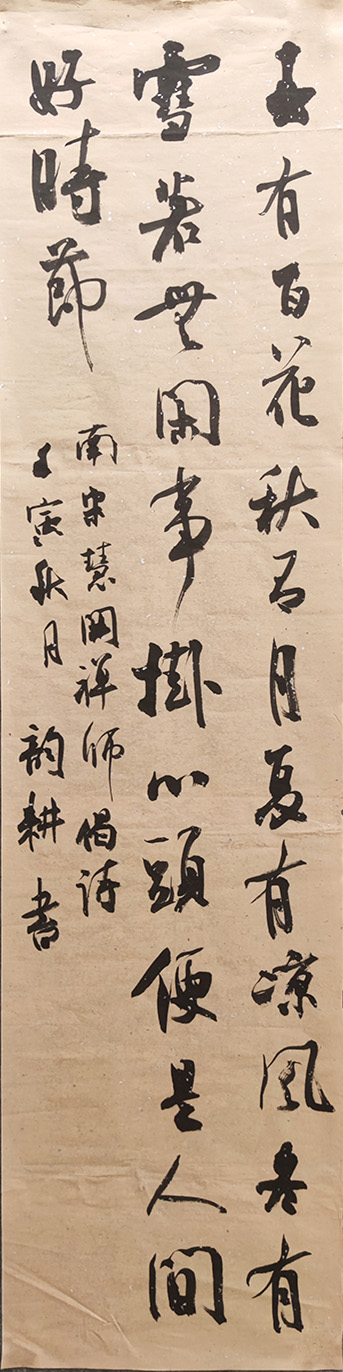 春有百花秋有月夏有凉風冬有
雪若無閑事掛心頭便是人間
好時節
南宋慧開禅師偈詩
壬寅秋月 韵耕書